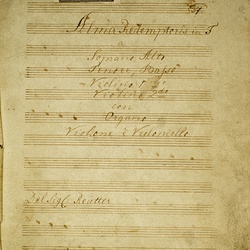 Alma Redemptoris in F
a
Soprano, Alto
Tenore, Basso
Violino 1mo
Violino 2do
con
Organo
Violone è Violoncello
Del Sigl. Reutter